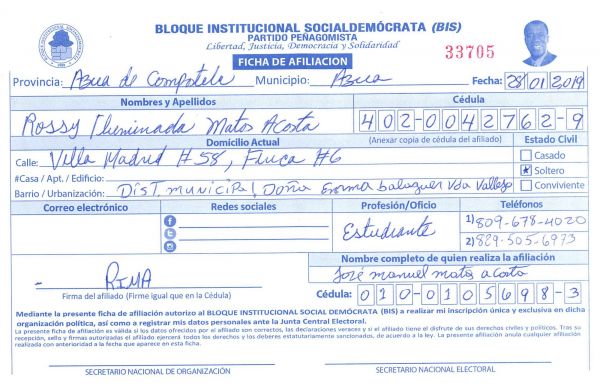 BLOQUE INSTITUCIONAL SOCIALDEMÓCRATA (BIS)
PARTIDO PEÑAGOMISTA
Libertad, Justicia, Democracia y Solidaridad
FICHA DE AFILIACION
33705
Provincia: Azua de Compostela Municipio: Azua Fecha: 28/01/2019
Nombres y Apellidos Cédula
Rossy Iluminada Matos Acosta 402-0042762-9
Domicilio Actual (Anexar copia de cédula del afiliado) Estado Civil
Calle: Villa Madrid #58, Finca #6 Casado
#Casa / Apt. / Edificio: Soltero
Barrio / Urbanización: Dist. municipal, Doña Emma balaguer Vda Vallejo Conviviente
Correo electrónico Redes sociales Profesión/Oficio Teléfonos
Estudiante 1) 809-678-4020
2) 829-505-6973
Nombre completo de quien realiza la afiliación
RIMA José manuel matos acosta
Firma del afiliado (Firme igual que en la Cédula) Cédula: 010-0105698-3
Mediante la presente ficha de afiliación autorizo al BLOQUE INSTITUCIONAL SOCIAL DEMÓCRATA (BIS) a realizar mi inscripción única y exclusiva en dicha
organización política, así como a registrar mis datos personales ante la Junta Central Electoral.
La presente ficha de afiliación es válida si los datos ofrecidos por el afiliado son correctos, las declaraciones veraces y si el afiliado tiene el disfrute de sus derechos civiles y políticos. Tras su
recepción, sello y firmas autorizadas el afiliado ejercerá todos los derechos y los deberes estatutariamente sancionados, de acuerdo a la ley. La presente afiliación anula cualquier afiliación
realizada con anterioridad a la fecha que aparece en esta ficha.
SECRETARIO NACIONAL DE ORGANIZACIÓN SECRETARIO NACIONAL ELECTORAL